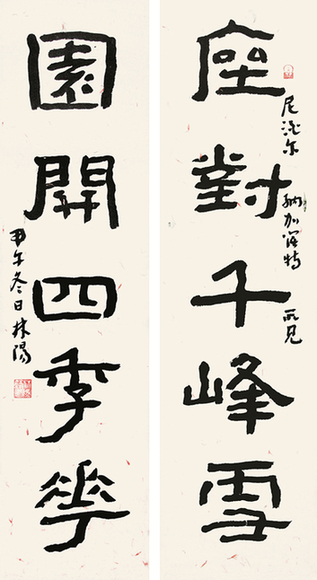 座對千峰雪
尼泊尔
納加闊特
所見
園開四季花
甲午冬日林陽